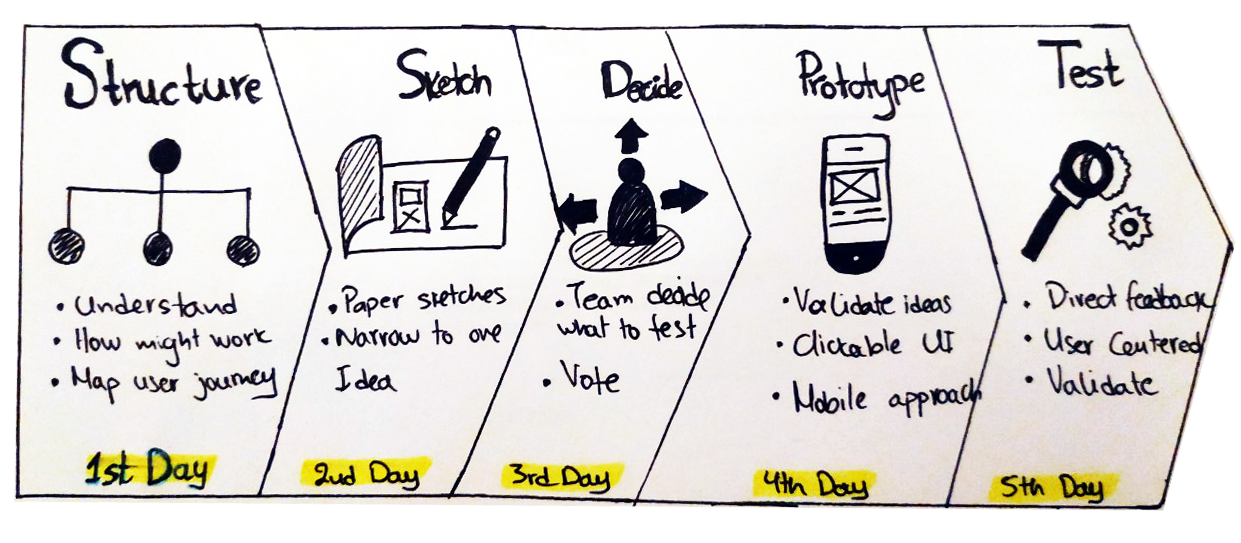 Structure
• Understand
• How might work
• Map user journey
1st Day
Sketch
• Paper sketches
• Narrow to one
Idea
2nd Day
Decide
• Team decide
what to test
• Vote
3rd Day
Prototype
• Validate ideas
• Clickable UI
• Mobile approach
4th Day
Test
• Direct feedback
• User Centered
• Validate
5th Day